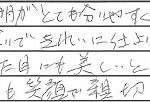 明がとても分りやすく
いでキレいに仕上
た目にも美しいと
も笑顔で親切